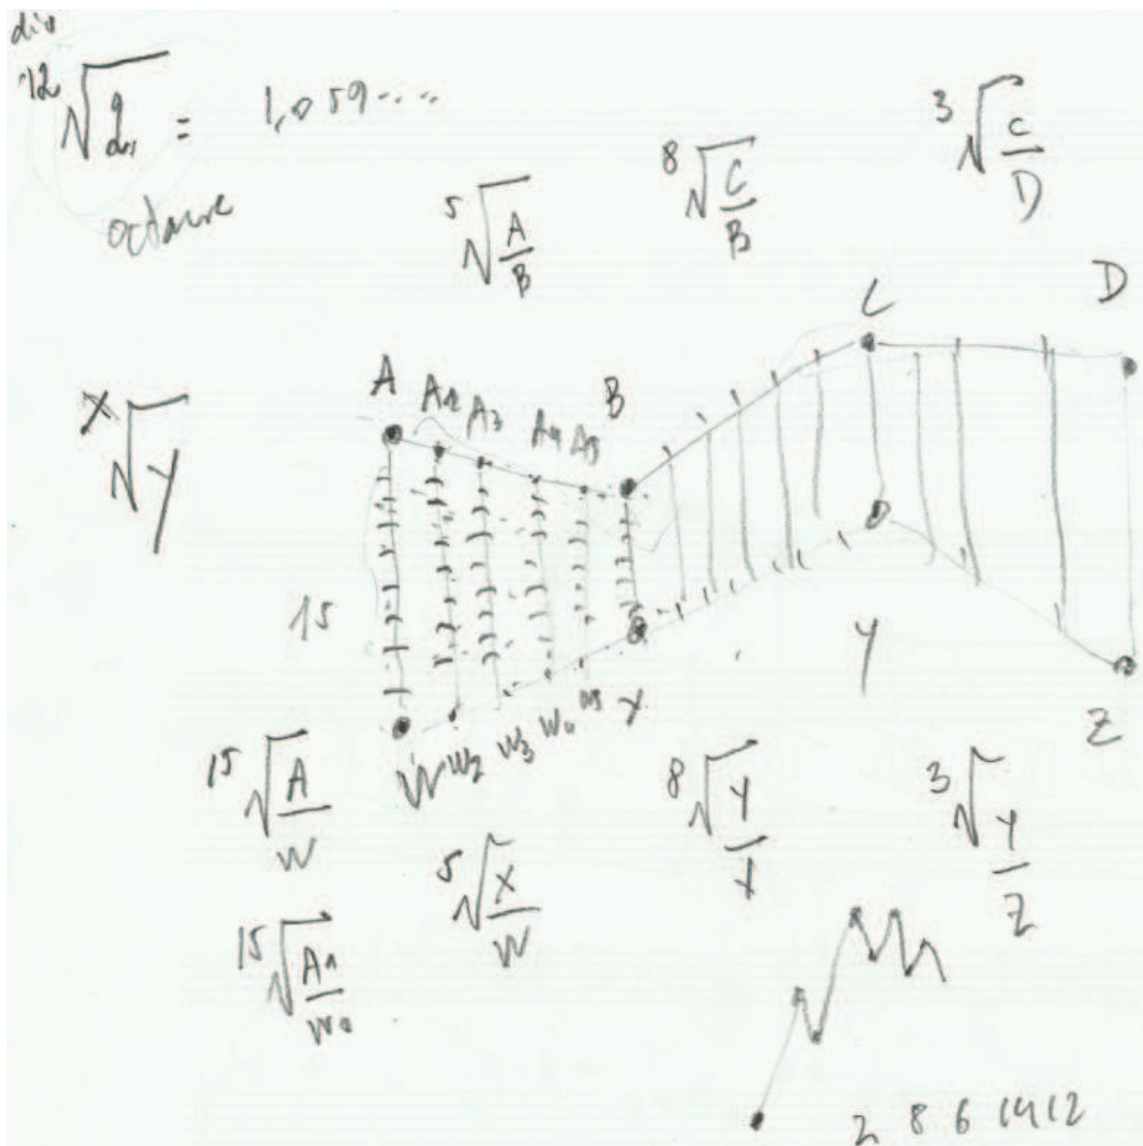 div
12√2 = 1,059....
octave
5√A/B
8√C/B
3√C/D
x√y
A A2 A3 A4 A5 B C D
15
W W2 W3 W4 W5 X Y Z
15√A/W
5√X/W
8√Y/X
3√Y/Z
15√A1/W
2 8 6 14 12